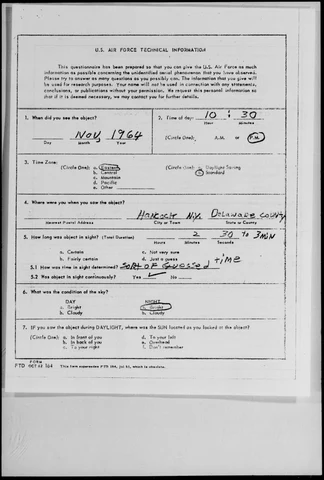 U.S. AIR FORCE TECHNICAL INFORMATION
This questionnaire has been prepared so that you can give the U.S. Air Force as much
information as possible concerning the unidentified aerial phenomenon that you have observed.
Please try to answer as many questions as you possibly can. The information that you give will
be used for research purposes. Your name will not be used in connection with any statements,
conclusions, or publications without your permission. We request this personal information so
that if it is deemed necessary, we may contact you for further details.
1. When did you see the object?
Nov, 1964
Day Month Year
2. Time of day: 10 : 30
Hour Minutes
(Circle One): A.M. or P.M.
3. Time Zone:
(Circle One): a. Eastern
b. Central
c. Mountain
d. Pacific
e. Other
(Circle One): a. Daylight Saving
b. Standard
4. Where were you when you saw the object?
Hancock N.Y. Delaware County
Nearest Postal Address City or Town State or County
5. How long was object in sight? (Total Duration) 2 30 to 3 min
Hours Minutes Seconds
a. Certain c. Not very sure
b. Fairly certain d. Just a guess
5.1 How was time in sight determined? Sort of Guessed time
5.2 Was object in sight continuously? Yes ✓ No
6. What was the condition of the sky?
DAY NIGHT
a. Bright a. Bright
b. Cloudy b. Cloudy
7. IF you saw the object during DAYLIGHT, where was the SUN located as you looked at the object?
(Circle One): a. In front of you d. To your left
b. In back of you e. Overhead
c. To your right f. Don't remember
FORM
FTD OCT 62 164 This form supersedes FTD 164, Jul 61, which is obsolete.